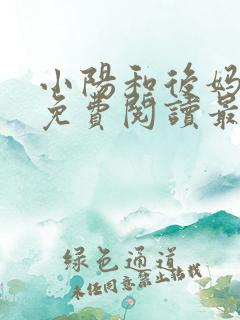 小陽和後妈
免費閱讀最
绿色通道
未任同意禁止转载